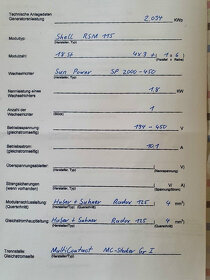 Technische Anlagedaten
Generatorleistung 2,034 kWp
Modultyp Shell RSM 115
(Hersteller, Typ)
Modulzahl 18 St 4 x 3 + (1 x 6)
(Parallel x Reihe)
Wechselrichter Sun Power SP 2000-450
(Hersteller, Typ)
Nennleistung eines
Wechselrichters 1,8 kW
Anzahl der
Wechselrichter 1
Betriebsspannung
(gleichstromseitig) 194 - 450 V
Betriebsstrom
(gleichstromseitig) 10.1 A
Überspannungsableiter V
(Hersteller, Typ)
Strangsicherungen
(wenn vorhanden) V A
(Hersteller, Typ)
Modulanschlussleitung Huber + Suhner Radox 125 4 mm²
(Hersteller, Typ) (Querschnitt)
Gleichstromhauptleitung Huber + Suhner Radox 125 4 mm²
(Hersteller, Typ) (Querschnitt)
Trennstelle MultiContact MC-Stecker Gr I
(Hersteller, Typ)